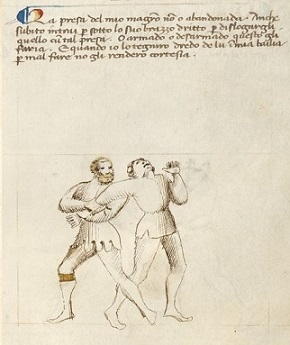 La presa del mio magro nō o abandonada. Anche
subito intrai p sotto lo suo brazzo dritto p dislogargli
quello cū tal presa. O armado o desarmado questo gli
faria. E quando io lo tegniro dredo de lu ī mia bailia
p mal fare no gli rendero cortesia.